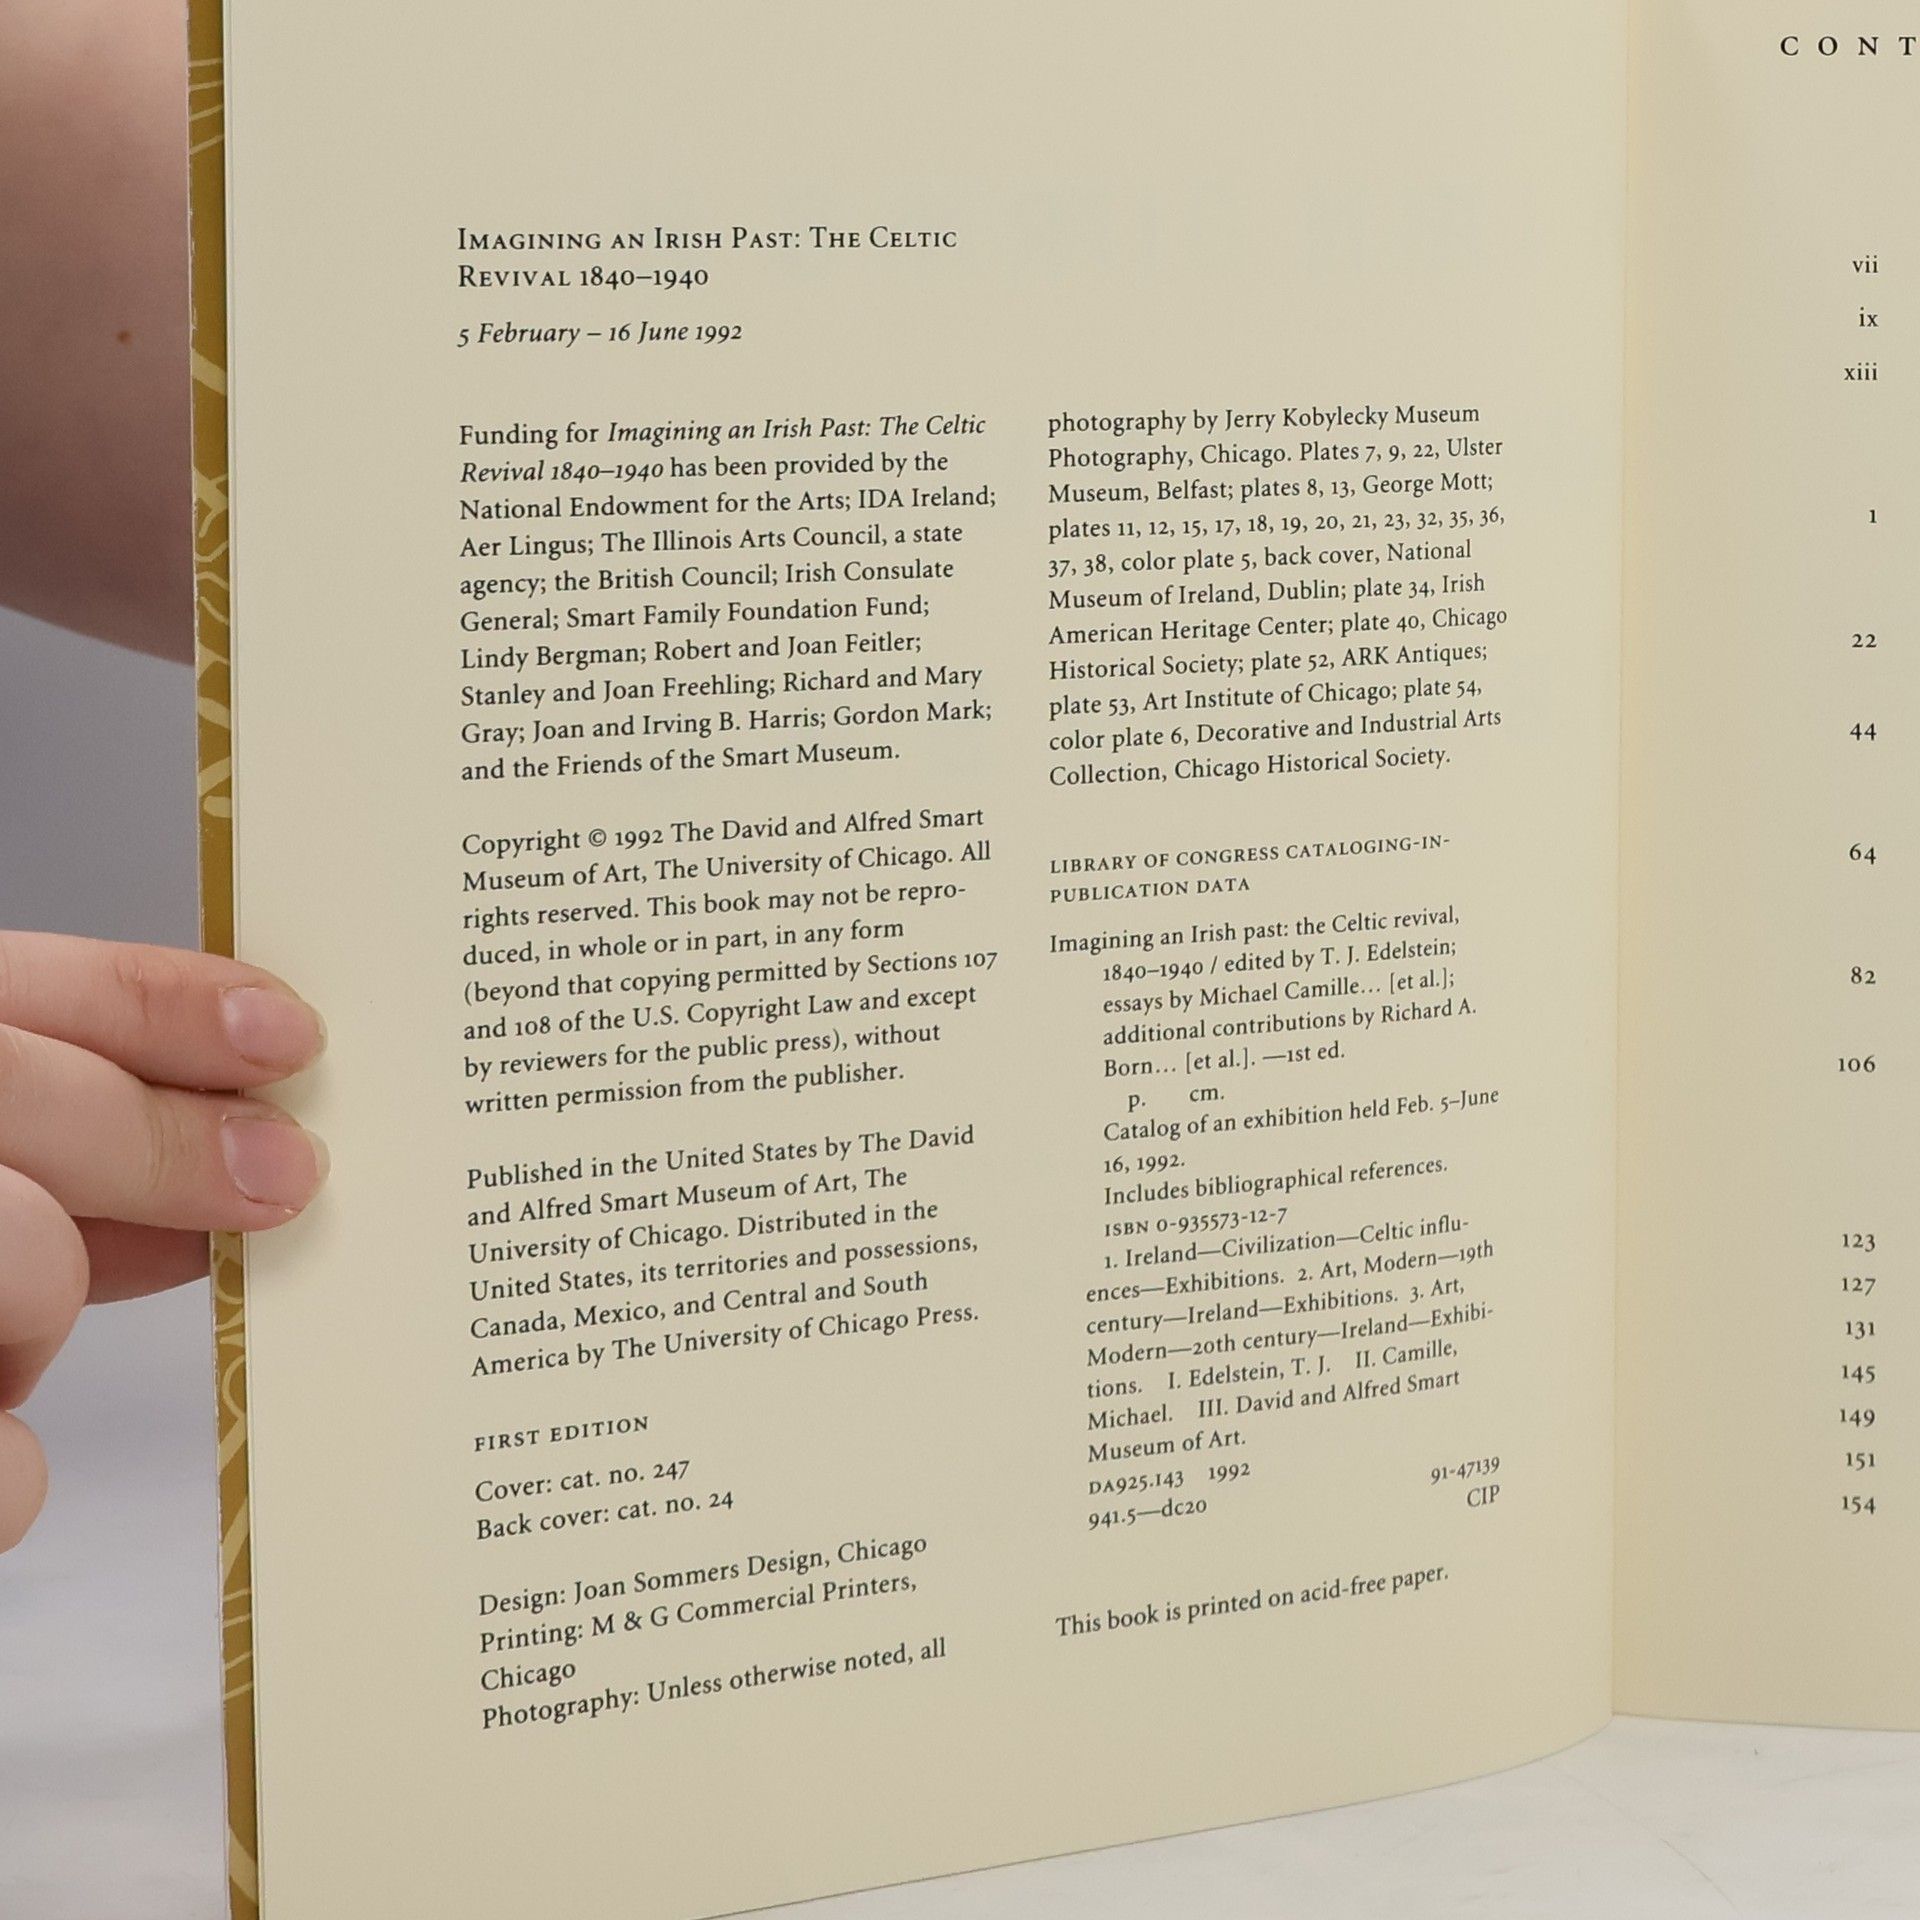 IMAGINING AN IRISH PAST: THE CELTIC
REVIVAL 1840–1940
5 February – 16 June 1992
Funding for Imagining an Irish Past: The Celtic
Revival 1840–1940 has been provided by the
National Endowment for the Arts; IDA Ireland;
Aer Lingus; The Illinois Arts Council, a state
agency; the British Council; Irish Consulate
General; Smart Family Foundation Fund;
Lindy Bergman; Robert and Joan Feitler;
Stanley and Joan Freehling; Richard and Mary
Gray; Joan and Irving B. Harris; Gordon Mark;
and the Friends of the Smart Museum.
Copyright © 1992 The David and Alfred Smart
Museum of Art, The University of Chicago. All
rights reserved. This book may not be repro-
duced, in whole or in part, in any form
(beyond that copying permitted by Sections 107
and 108 of the U.S. Copyright Law and except
by reviewers for the public press), without
written permission from the publisher.
Published in the United States by The David
and Alfred Smart Museum of Art, The
University of Chicago. Distributed in the
United States, its territories and possessions,
Canada, Mexico, and Central and South
America by The University of Chicago Press.
FIRST EDITION
Cover: cat. no. 247
Back cover: cat. no. 24
Design: Joan Sommers Design, Chicago
Printing: M & G Commercial Printers,
Chicago
Photography: Unless otherwise noted, all
photography by Jerry Kobylecky Museum
Photography, Chicago. Plates 7, 9, 22, Ulster
Museum, Belfast; plates 8, 13, George Mott;
plates 11, 12, 15, 17, 18, 19, 20, 21, 23, 32, 35, 36,
37, 38, color plate 5, back cover, National
Museum of Ireland, Dublin; plate 34, Irish
American Heritage Center; plate 40, Chicago
Historical Society; plate 52, ARK Antiques;
plate 53, Art Institute of Chicago; plate 54,
color plate 6, Decorative and Industrial Arts
Collection, Chicago Historical Society.
LIBRARY OF CONGRESS CATALOGING-IN-
PUBLICATION DATA
Imagining an Irish past: the Celtic revival,
1840–1940 / edited by T. J. Edelstein;
essays by Michael Camille... [et al.];
additional contributions by Richard A.
Born... [et al.]. —1st ed.
p. cm.
Catalog of an exhibition held Feb. 5–June
16, 1992.
Includes bibliographical references.
ISBN 0-935573-12-7
1. Ireland—Civilization—Celtic influ-
ences—Exhibitions. 2. Art, Modern—19th
century—Ireland—Exhibitions. 3. Art,
Modern—20th century—Ireland—Exhibi-
tions. I. Edelstein, T. J. II. Camille,
Michael. III. David and Alfred Smart
Museum of Art.
DA925.I43 1992 91-47139
941.5—dc20 CIP
This book is printed on acid-free paper.
CONT
vii
ix
xiii
1
22
44
64
82
106
123
127
131
145
149
151
154